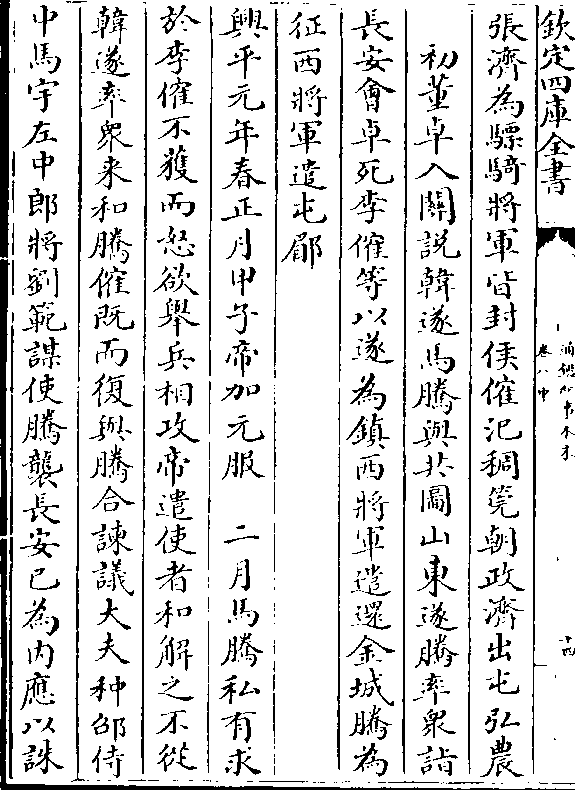 欽定四庫全書
通鑑紀事本末
卷八中
十四
張濟為驃騎將軍皆封侯傕汜稠筦朝政濟出屯弘農
初董卓入關說韓遂馬騰與共圖山東遂騰率衆詣
長安會卓死李傕等以遂為鎮西將軍遣還金城騰為
征西將軍遣屯郿
興平元年春正月甲子帝加元服　二月馬騰私有求
於李傕不獲而怒欲舉兵相攻帝遣使者和解之不從
韓遂率衆来和騰傕既而復與騰合諫議大夫种邵侍
中馬宇左中郎將劉範謀使騰襲長安已為内應以誅